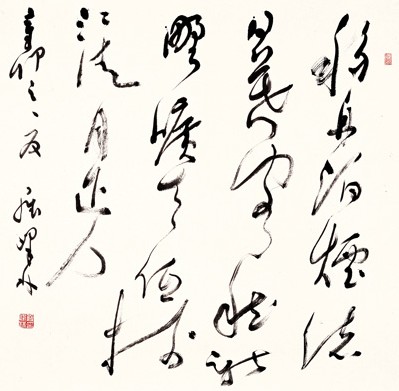 移舟泊煙渚
日暮客愁新
野曠天低樹
江清月近人
辛卯之夏